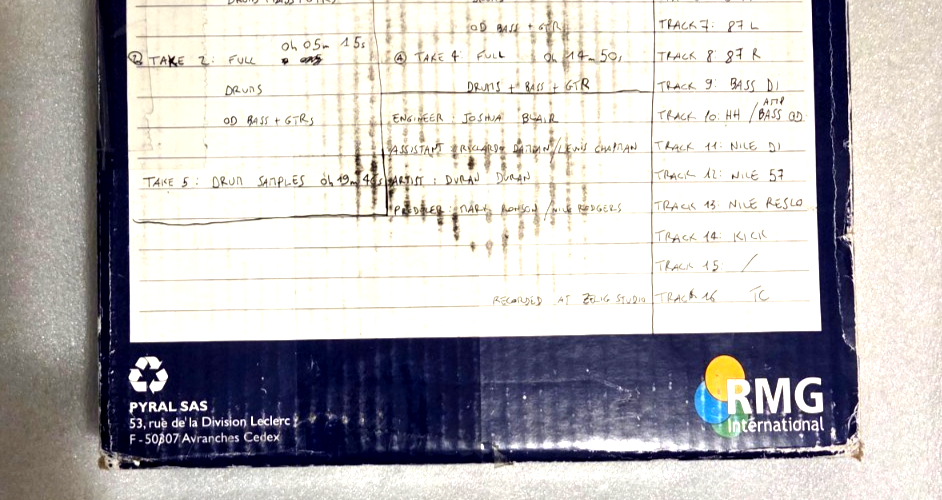 OD BASS + GTR
TRACK 7: 87 L
0h 05m 15s
② TAKE 2: FULL
④ TAKE 4 FULL 0h 14m 50s
TRACK 8: 87 R
DRUMS
DRUMS + BASS + GTR
TRACK 9: BASS DI
OD BASS + GTRS
ENGINEER: JOSHUA BLAIR
TRACK 10: HH / BASS AMP OD
ASSISTANT: RICCARDO DAMIAN / LEWIS CHAPMAN
TRACK 11: NILE DI
TAKE 5: DRUM SAMPLES 0h 19m
ARTIST: DURAN DURAN
TRACK 12: NILE 57
PRODUCER: MARK RONSON / NILE RODGERS
TRACK 13: NILE RESLO
TRACK 14: KICK
TRACK 15 /
RECORDED AT ZELIG STUDIO
TRACK 16 TC
PYRAL SAS
53, rue de la Division Leclerc
F - 50307 Avranches Cedex
RMG
International